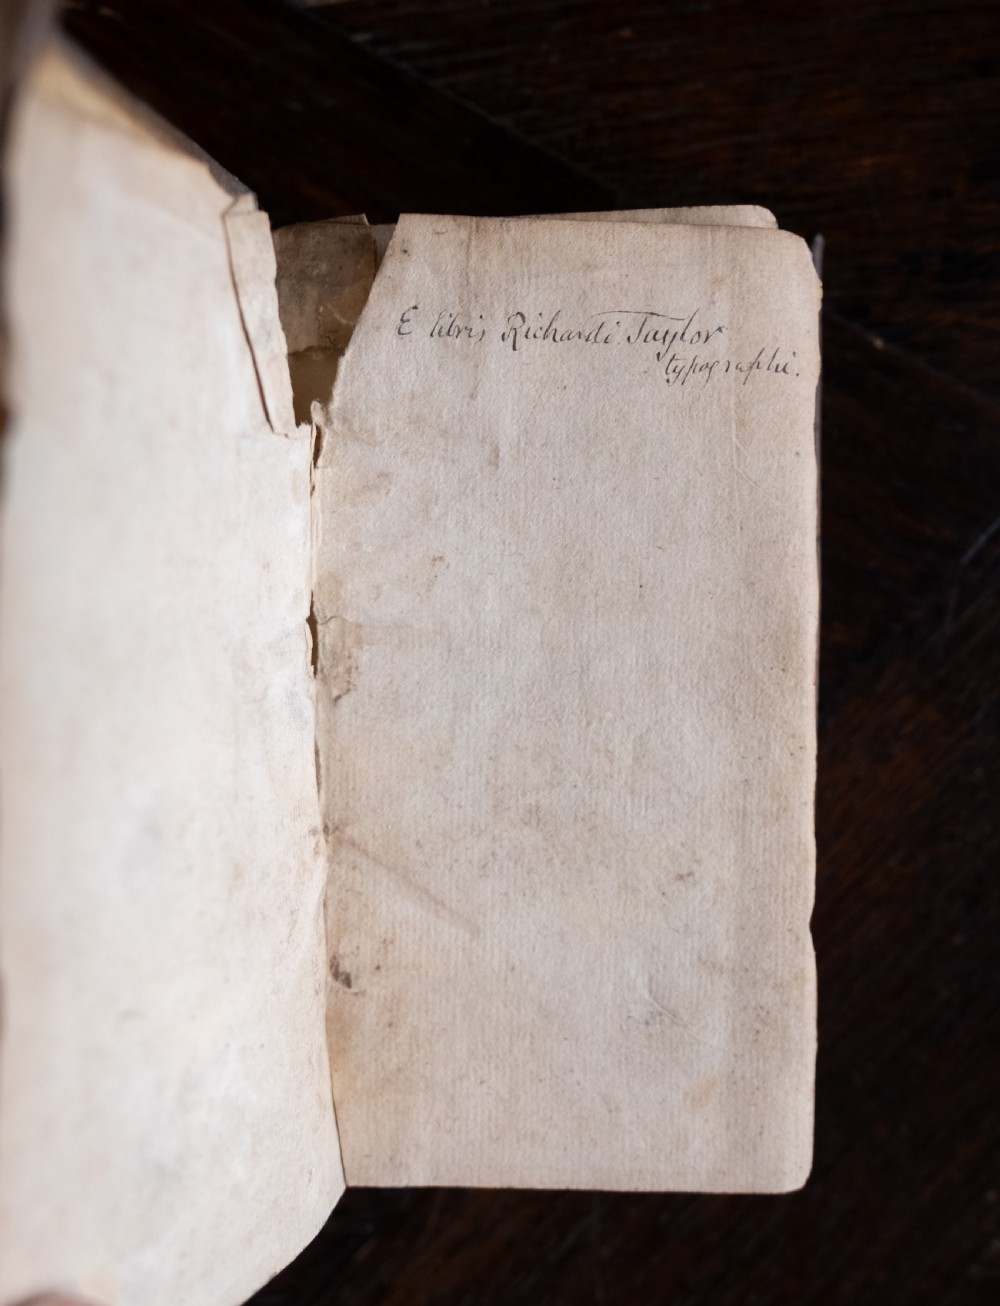 E libris Richardi Taylor
typographi.